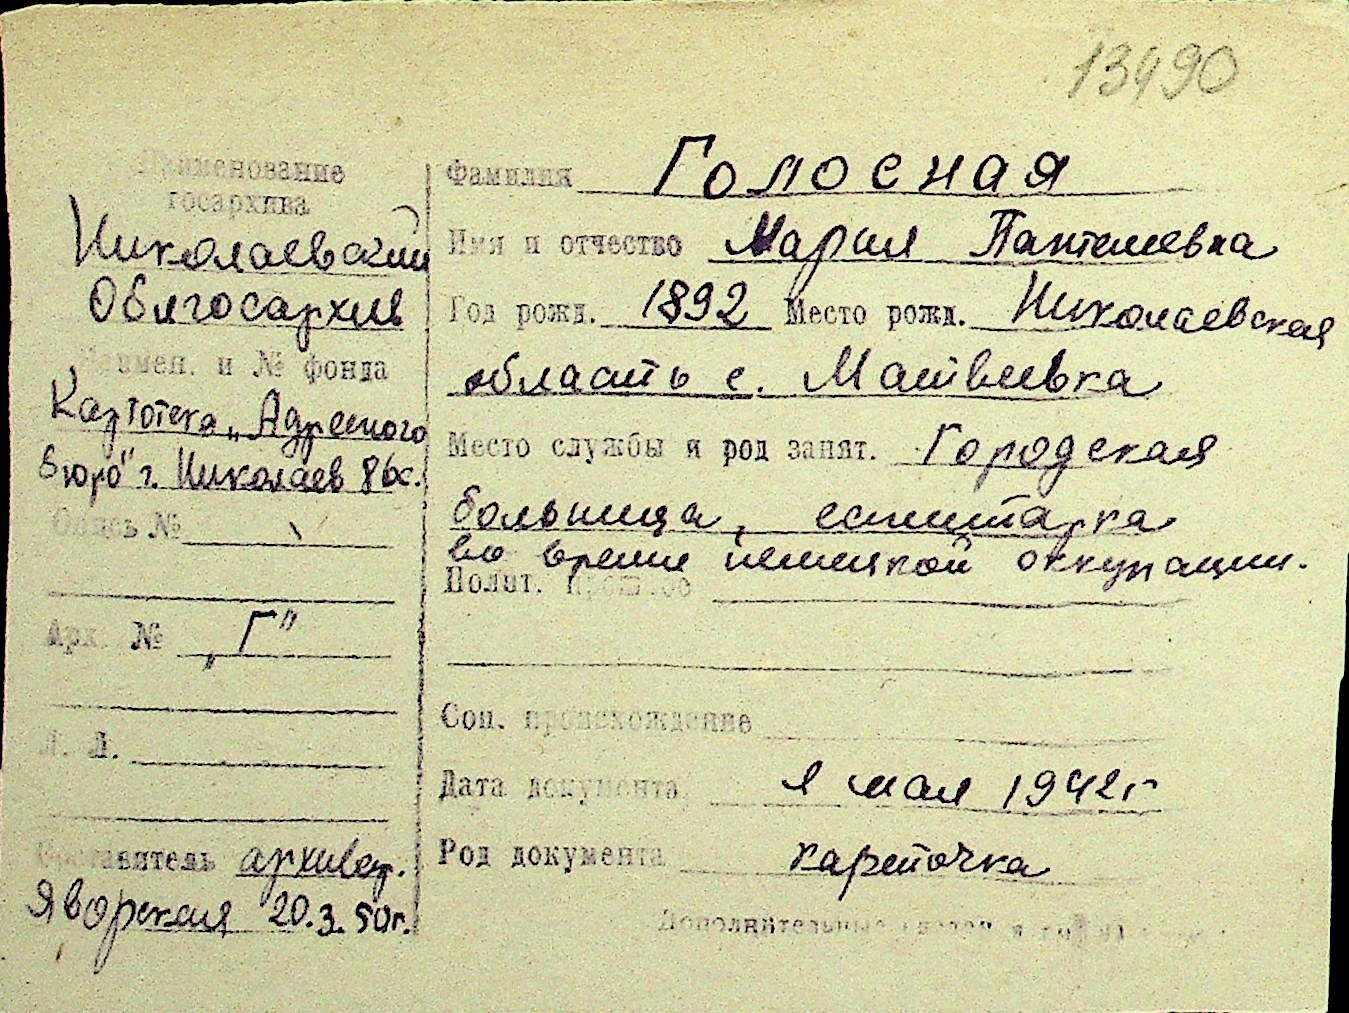 13490
Наименование
госархива
Николаевский
Облгосархив
Наимен. и № фонда
Картотека „Адресного
бюро" г. Николаев 86х.
Опись №
Арх. № „Г"
Л. Л.
Составитель архивар.
Яворская 20.3.50г.
Фамилия Голосная
Имя и отчество Мария Пантелеевна
Год рожд. 1892 Место рожд. Николаевская
область с. Матвеевка
Место службы и род занят. Городская
больница, санитарка
во время немецкой оккупации.
Полит. прошлое
Соц. происхождение
Дата документа 1 мая 1942г
Род документа карточка
Дополнительные